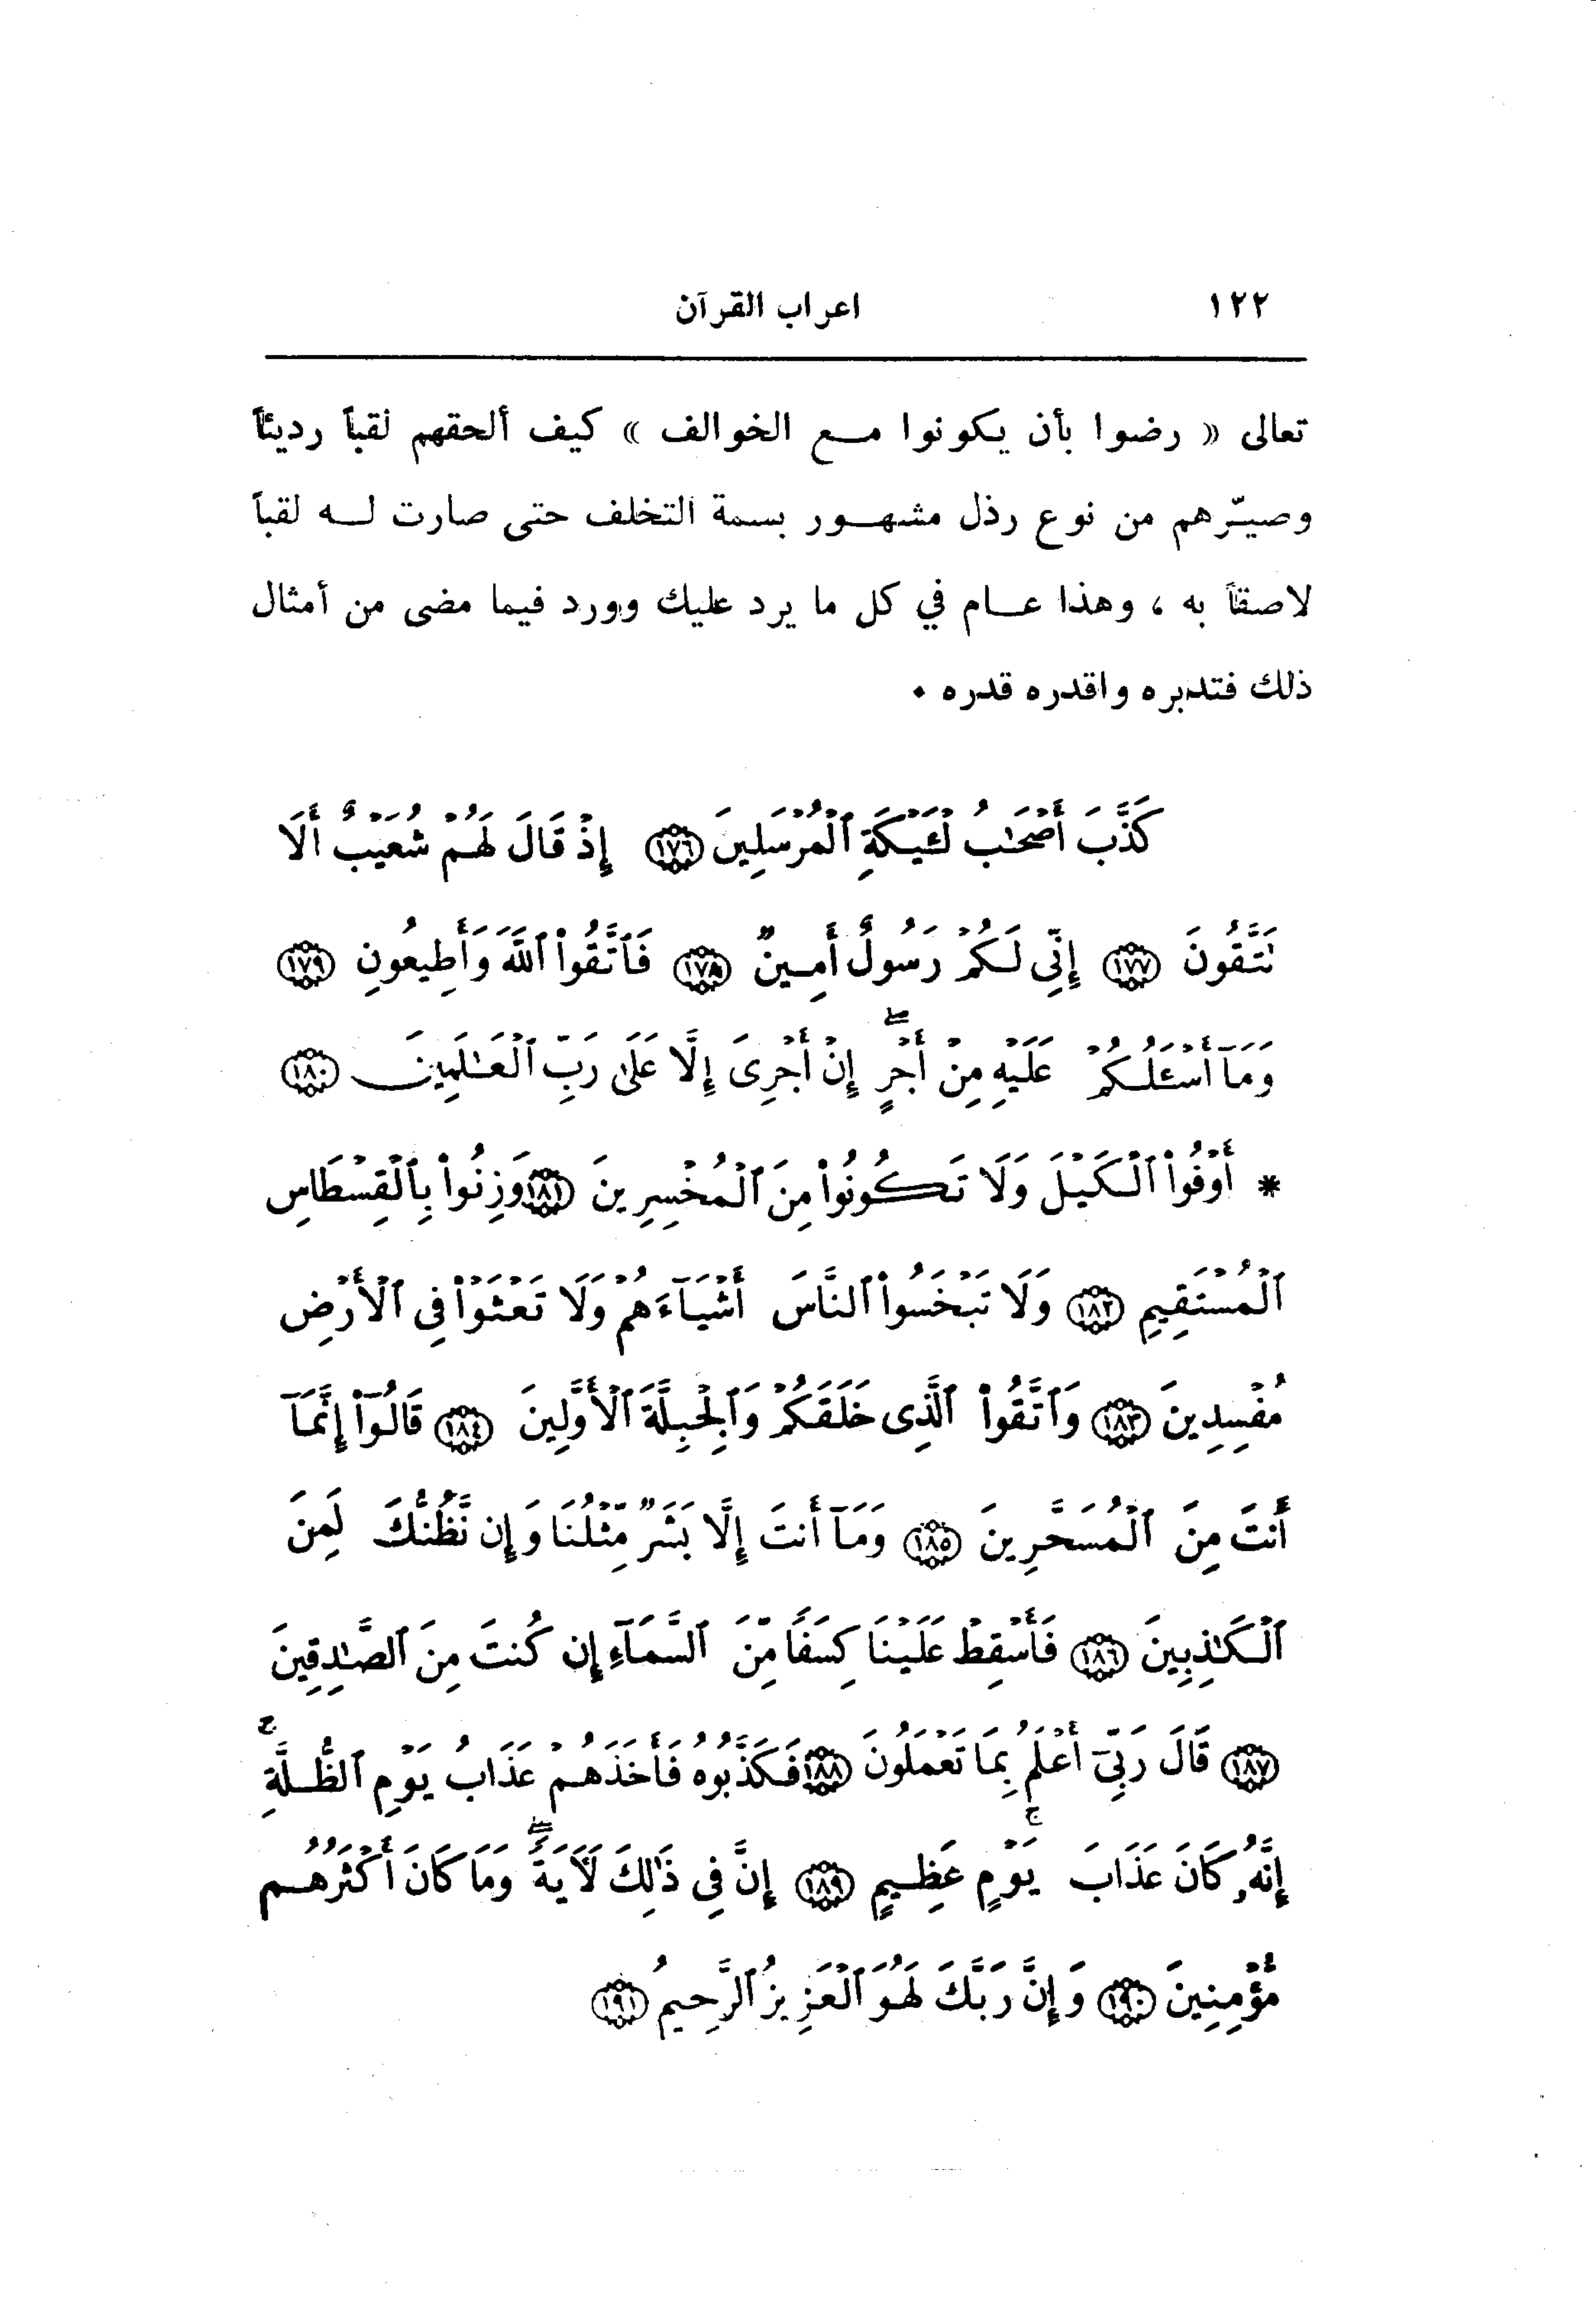 ١٢٢ اعراب القرآن
تعالى « رضوا بأن يكونوا مع الخوالف » كيف ألحقهم لقباً رديئاً
وصيّرهم من نوع رذل مشهور بسمة التخلف حتى صارت له لقباً
لاصقاً به ، وهذا عام في كل ما يرد عليك وورد فيما مضى من أمثال
ذلك فتدبره واقدره قدره ٠
كَذَّبَ أَصْحَٰبُ لْـَٔيْكَةِ ٱلْمُرْسَلِينَ ١٧٦ إِذْ قَالَ لَهُمْ شُعَيْبٌ أَلَا
تَتَّقُونَ ١٧٧ إِنِّى لَكُمْ رَسُولٌ أَمِينٌ ١٧٨ فَٱتَّقُوا۟ ٱللَّهَ وَأَطِيعُونِ ١٧٩
وَمَآ أَسْـَٔلُكُمْ عَلَيْهِ مِنْ أَجْرٍ ۖ إِنْ أَجْرِىَ إِلَّا عَلَىٰ رَبِّ ٱلْعَٰلَمِينَ ١٨٠
* أَوْفُوا۟ ٱلْكَيْلَ وَلَا تَكُونُوا۟ مِنَ ٱلْمُخْسِرِينَ ١٨١ وَزِنُوا۟ بِٱلْقِسْطَاسِ
ٱلْمُسْتَقِيمِ ١٨٢ وَلَا تَبْخَسُوا۟ ٱلنَّاسَ أَشْيَآءَهُمْ وَلَا تَعْثَوْا۟ فِى ٱلْأَرْضِ
مُفْسِدِينَ ١٨٣ وَٱتَّقُوا۟ ٱلَّذِى خَلَقَكُمْ وَٱلْجِبِلَّةَ ٱلْأَوَّلِينَ ١٨٤ قَالُوٓا۟ إِنَّمَآ
أَنتَ مِنَ ٱلْمُسَحَّرِينَ ١٨٥ وَمَآ أَنتَ إِلَّا بَشَرٌ مِّثْلُنَا وَإِن نَّظُنُّكَ لَمِنَ
ٱلْكَٰذِبِينَ ١٨٦ فَأَسْقِطْ عَلَيْنَا كِسَفًا مِّنَ ٱلسَّمَآءِ إِن كُنتَ مِنَ ٱلصَّٰدِقِينَ
١٨٧ قَالَ رَبِّىٓ أَعْلَمُ بِمَا تَعْمَلُونَ ١٨٨ فَكَذَّبُوهُ فَأَخَذَهُمْ عَذَابُ يَوْمِ ٱلظُّلَّةِ ۚ
إِنَّهُۥ كَانَ عَذَابَ يَوْمٍ عَظِيمٍ ١٨٩ إِنَّ فِى ذَٰلِكَ لَـَٔايَةً ۖ وَمَا كَانَ أَكْثَرُهُم
مُّؤْمِنِينَ ١٩٠ وَإِنَّ رَبَّكَ لَهُوَ ٱلْعَزِيزُ ٱلرَّحِيمُ ١٩١